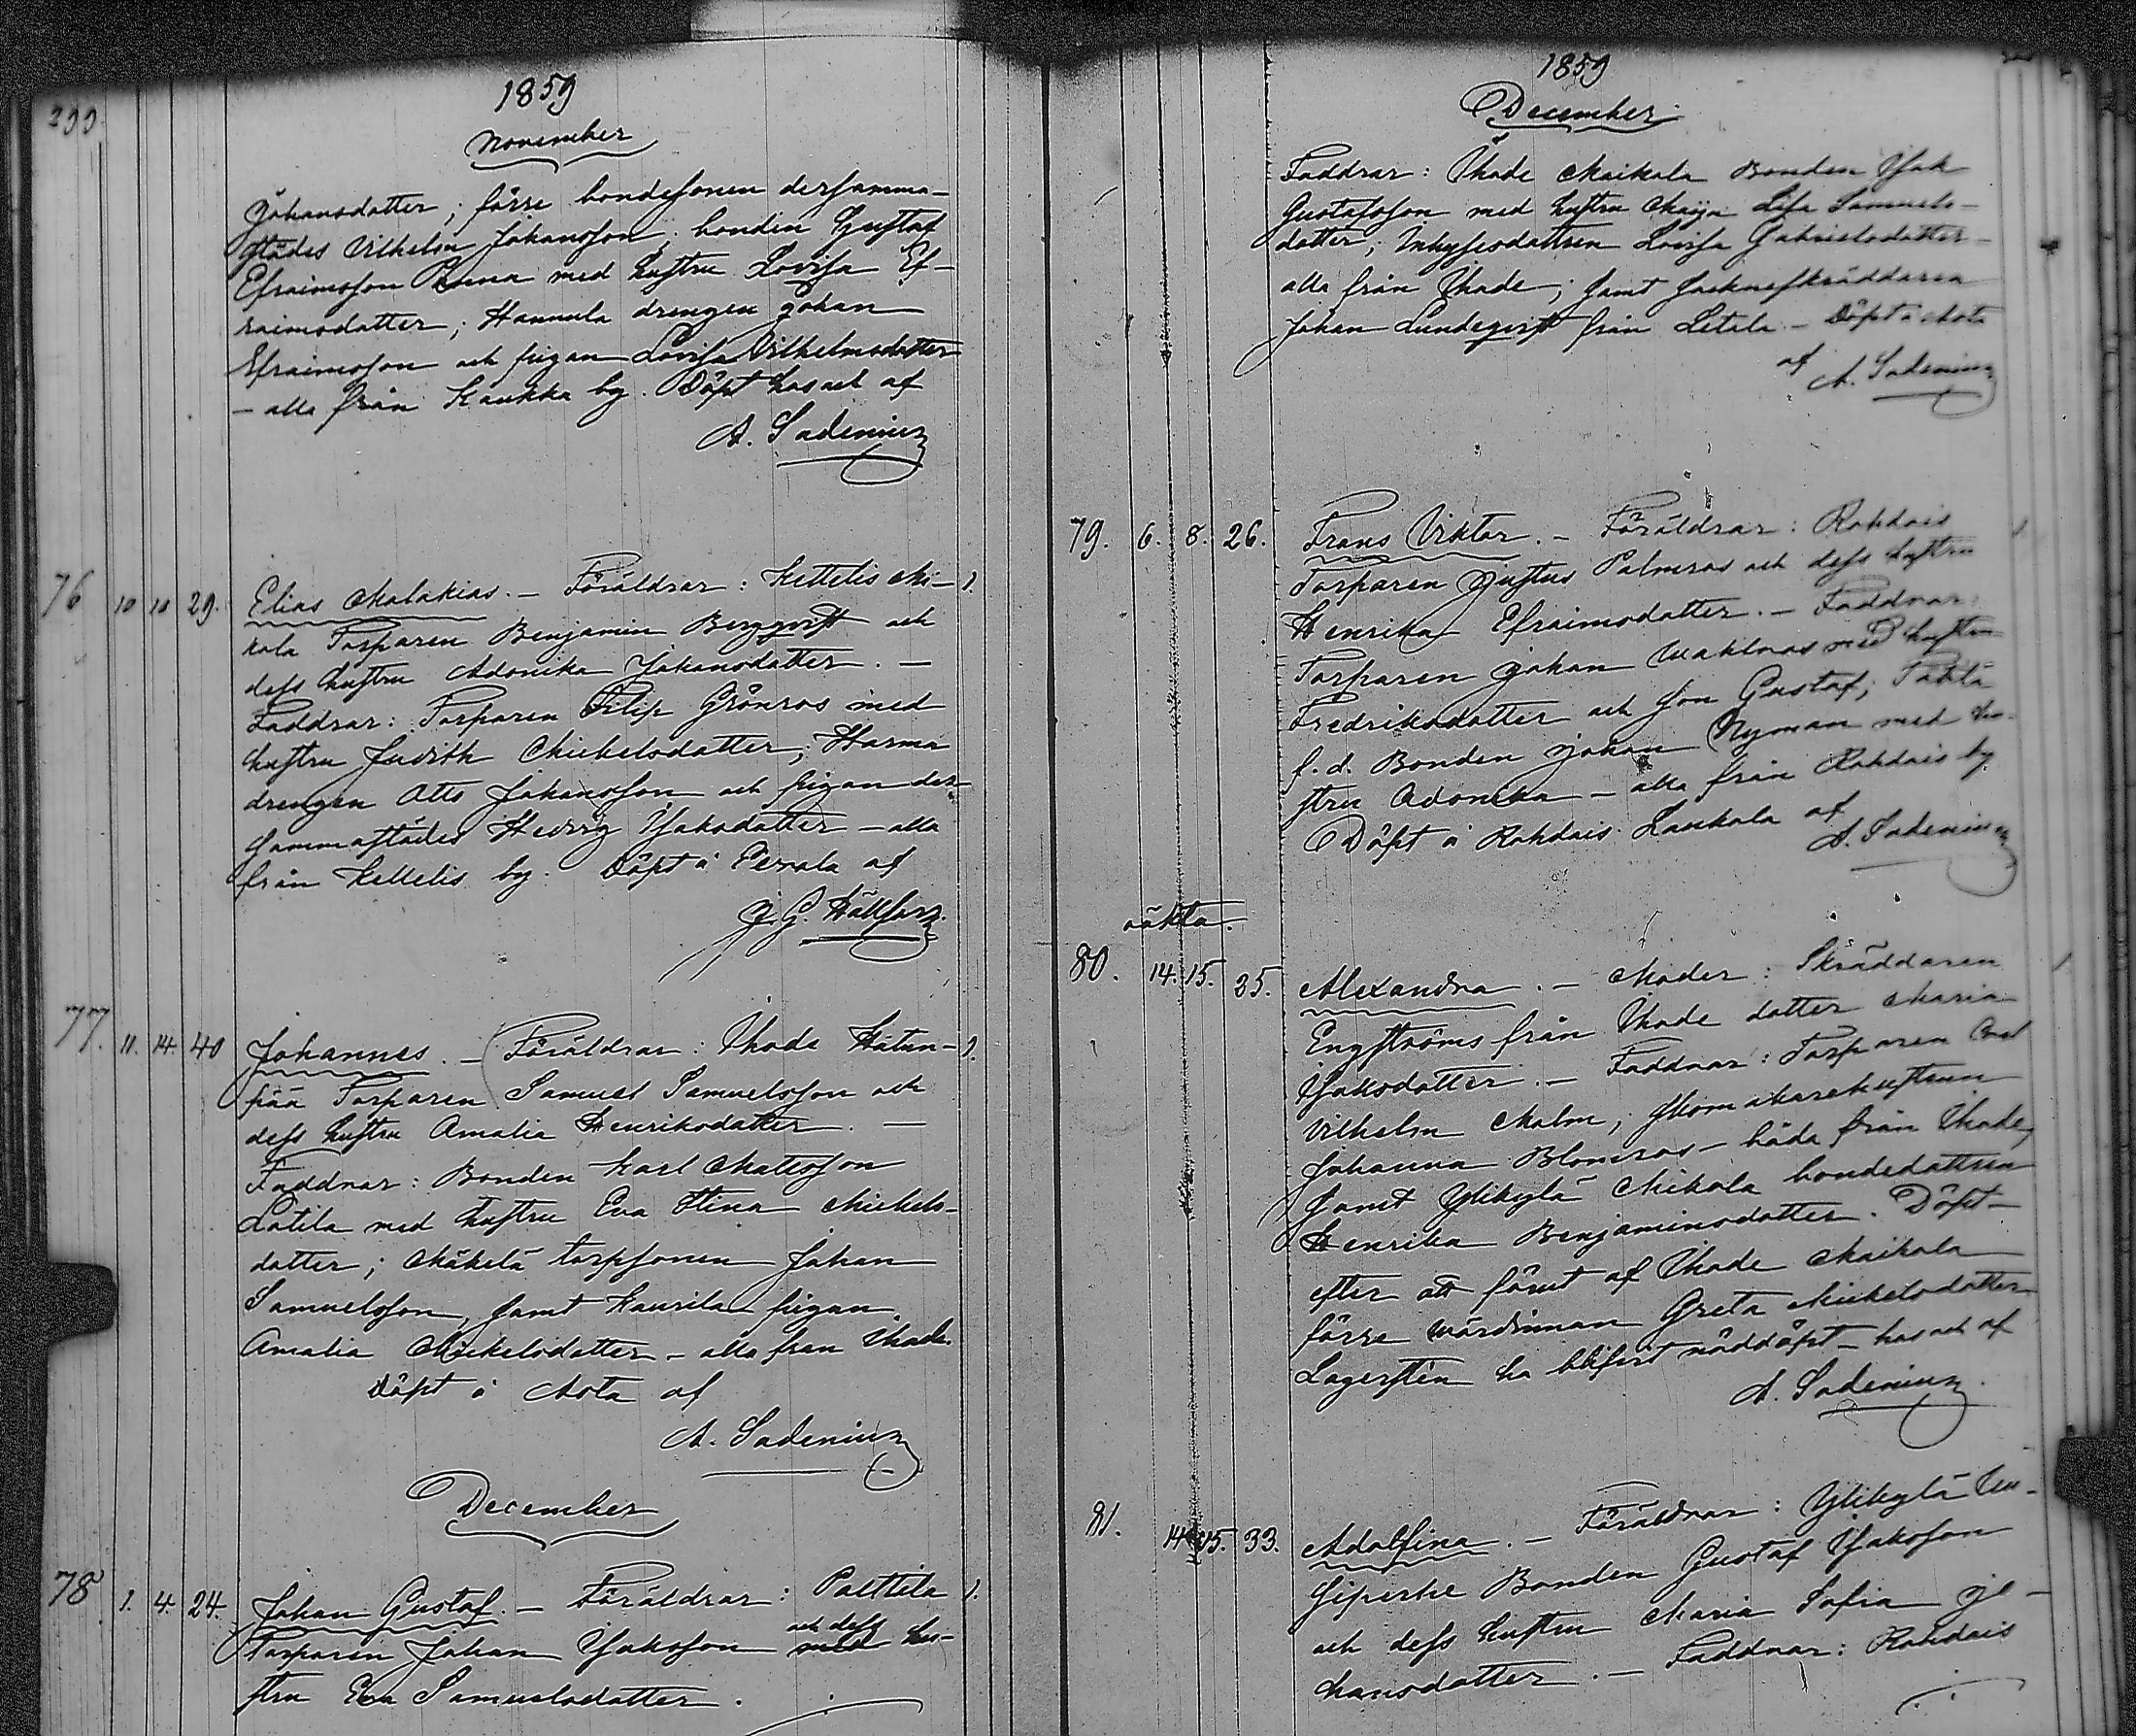 299
1859
November
Johansdatter; förre bondesonen dersamma-
städes Vilhelm Johansson; bonden Gustaf
Efraimsson Penna med hustru Lovisa Ef-
raimsdatter; Hannula drengen Johan
Efraimsson och pigan Lovisa Vilhelmsdatter
- alla från Kaukka by. Döpt hos och af
A. Sadenius
76 10 10 29. Elias Malakias. - Föräldrar: Kettelis Mi- 1.
kola Torparen Benjamin Bergqvist och
dess hustru Adonika Johansdatter. -
Faddrar: Torparen Filip Grönros med
hustru Judith Mickelsdatter; Harma
drengen Otto Johansson och pigan der-
sammastädes Hedvig Isaksdatter - alla
från Kettelis by. Döpt å Perala af
J. G. Hällfors.
77. 11. 14. 40 Johannes. - Föräldrar: Ihode Hätun- 1.
pää Torparen Samuel Samuelsson och
dess hustru Amalia Henriksdatter. -
Faddrar: Bonden Karl Matsson
Latila med hustru Eva Stina Mickels-
datter; Mäkelä torpsonen Johan
Samuelsson, samt Kaurila pigan
Amalia Mickelsdatter - alla från Ihode.
Döpt å Aota af
A. Sadenius
December
78 1. 4. 24. Johan Gustaf. - Föräldrar: Palttila 1.
Torparen Johan Isaksson med och dess hu-
stru Eva Samuelsdatter.
1859
December
Faddrar: Ihode Maikala Bonden Isak
Gustafsson med hustru Maija Lisa Samuels-
datter; Inhysesdattren Lovisa Gabrielsdatter -
alla från Ihode; samt Socknefkräddaren
Johan Lundeqvist från Letala. - Döpt å Aota
af A. Sadenius
79. 6. 8. 26. Frans Viktor. - Föräldrar: Rohdais
Torparen Justus Palmros och dess hustru
Henrika Efraimsdatter. - Faddrar:
Torparen Johan Wahlros med hustru
Fredriksdatter och son Gustaf;
f.d. Bonden Johan Nyman med hu-
stru Adonika - alla från Rohdais by
Döpt å Rohdais Laukola af
A. Sadenius
oäkta.
80. 14. 15. 35. Alexandra. - Moder: Skräddaren
Engströms från Ihode datter Maria
Isaksdatter. - Faddrar: Torparen Carl
Vilhelm Malm; skomakarehustrun
Johanna Blomros - båda från Ihode,
samt Ylikylä Mikola bondedattren
Henrika Benjaminsdatter. Döpt -
efter att förut af Ihode Maikala
förre wärdinnan Greta Mickelsdatter
Lagerstén ha blifvit nöddöpt - hos och af
A. Sadenius.
81. 14. 15. 33. Adolfina. - Föräldrar: Ylikylä Uu-
siperhe Bonden Gustaf Isaksson
och dess hustru Maria Sofia Jo-
hansdatter. - Faddrar: Rohdais